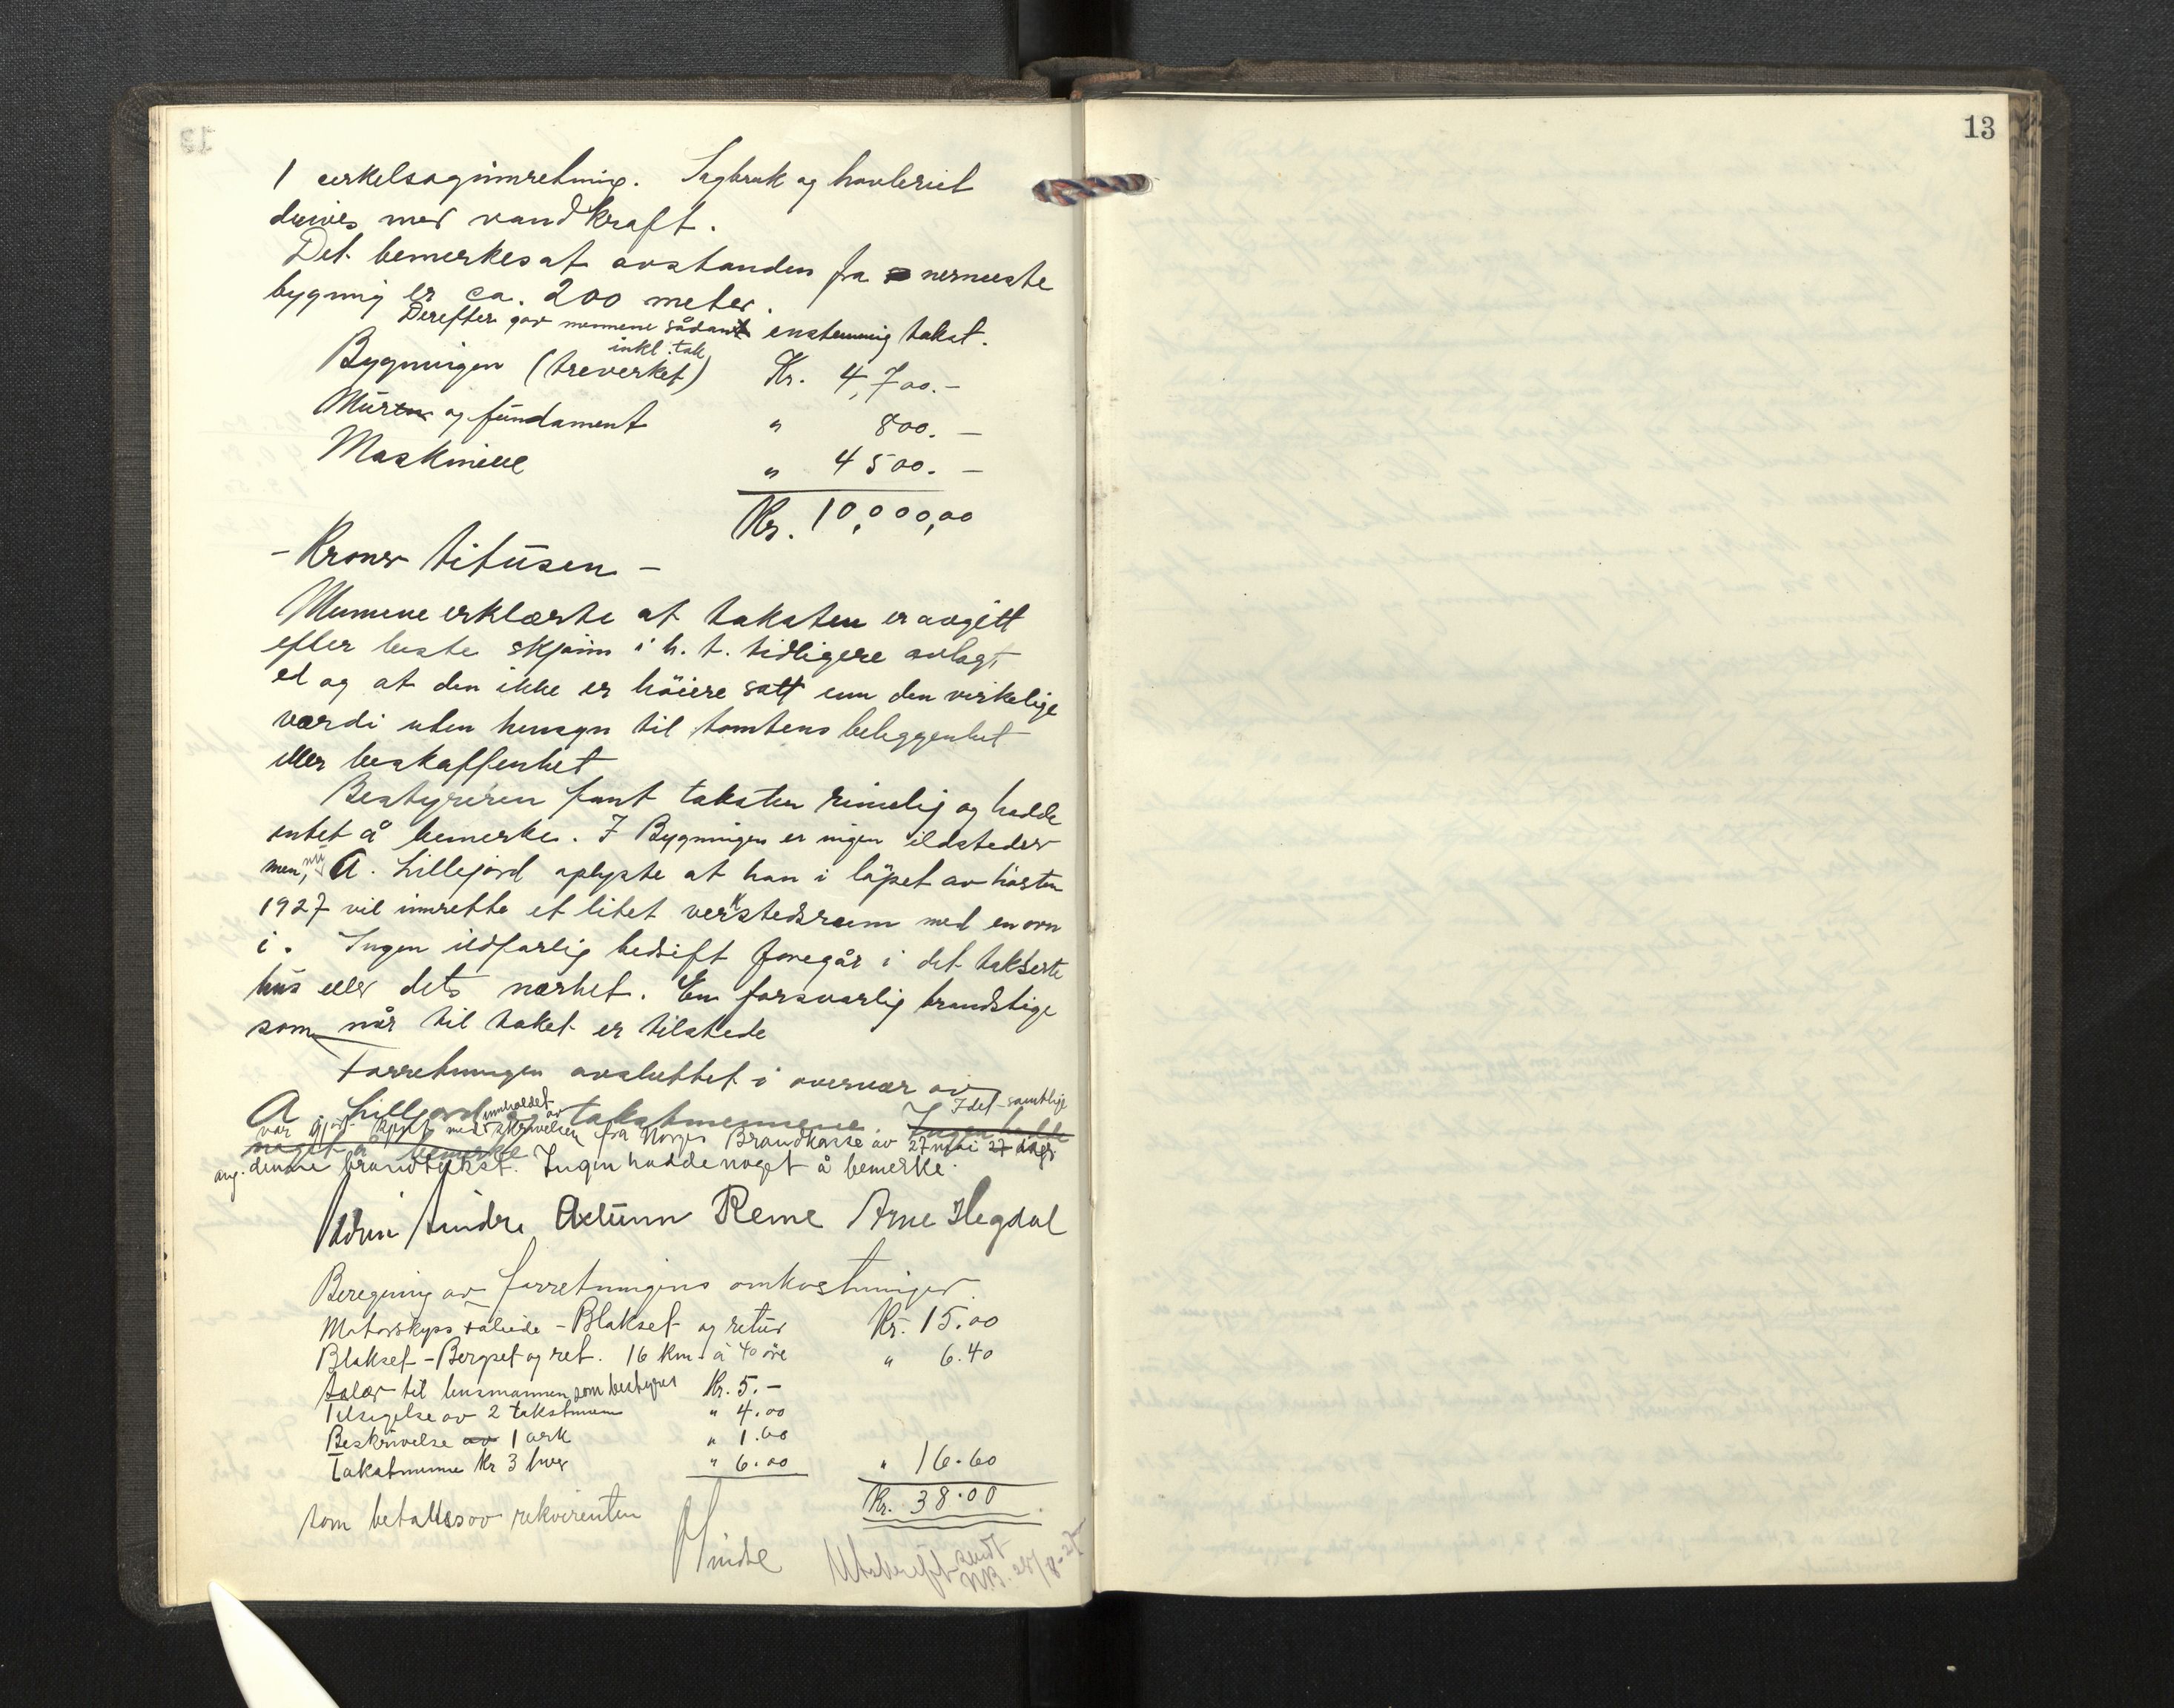 1 cirkelsaginnretning. Sagbruk og høvleriet
drives med vandkraft.
Det bemerkes at avstanden fra nermeste
bygning er ca. 200 meter.
Derefter gav mennene sådan enstemmig takst.
inkl. tak
Bygningen (treverket) Kr. 4,700.-
Mur og fundament " 800.-
Maskinene " 4500.-
Kr. 10,000,00
- Kroner titusen -
Mennene erklærte at taksten er avgitt
efter beste skjønn i h. t. tidligere avlagt
ed og at den ikke er höiere satt enn den virkelige
værdi uten hensyn til tomtens beliggenhet
eller beskaffenhet
Bestyreren fant taksten rimelig og hadde
intet å bemerke. I Bygningen er ingen ildsteder
men, A. Lillejord oplyste at han i löpet av hösten
1927 vil innrette et litet verkstedsrum med en ovn
i. Ingen ildfarlig bedrift foregår i det takserte
hus eller dets nærhet. En forsvarlig brandstige
som når til taket er tilstede
Forretningen avsluttet i overvær av
A. Lillejord og takstmennene. Ingen hadde
Idet samtlige
var gjort kjent med innholdet av skrivelsen fra Norges Brandkasse av 27 mai 27
noget å bemerke
ang. denne brandtakst. Ingen hadde noget å bemerke.
Hindre Astunn Reme Arne Hegdal
Beregning av forretningens omkostninger.
Motorskyss - Blakset og retur Kr. 15.00
Blakset - Berget og ret. 16 km. à 40 öre " 6.40
Salær til lensmannen som bestyrer Kr. 5.-
Tilsigelse av 2 takstmenn " 4.00
Beskrivelse av 1 ark " 1.60
Takstmenne Kr 3 hver " 6.00 " 16.60
Kr. 38.00
som betales av rekvirenten
Hindre
Utskrift sendt
NB. 25/8-27
13